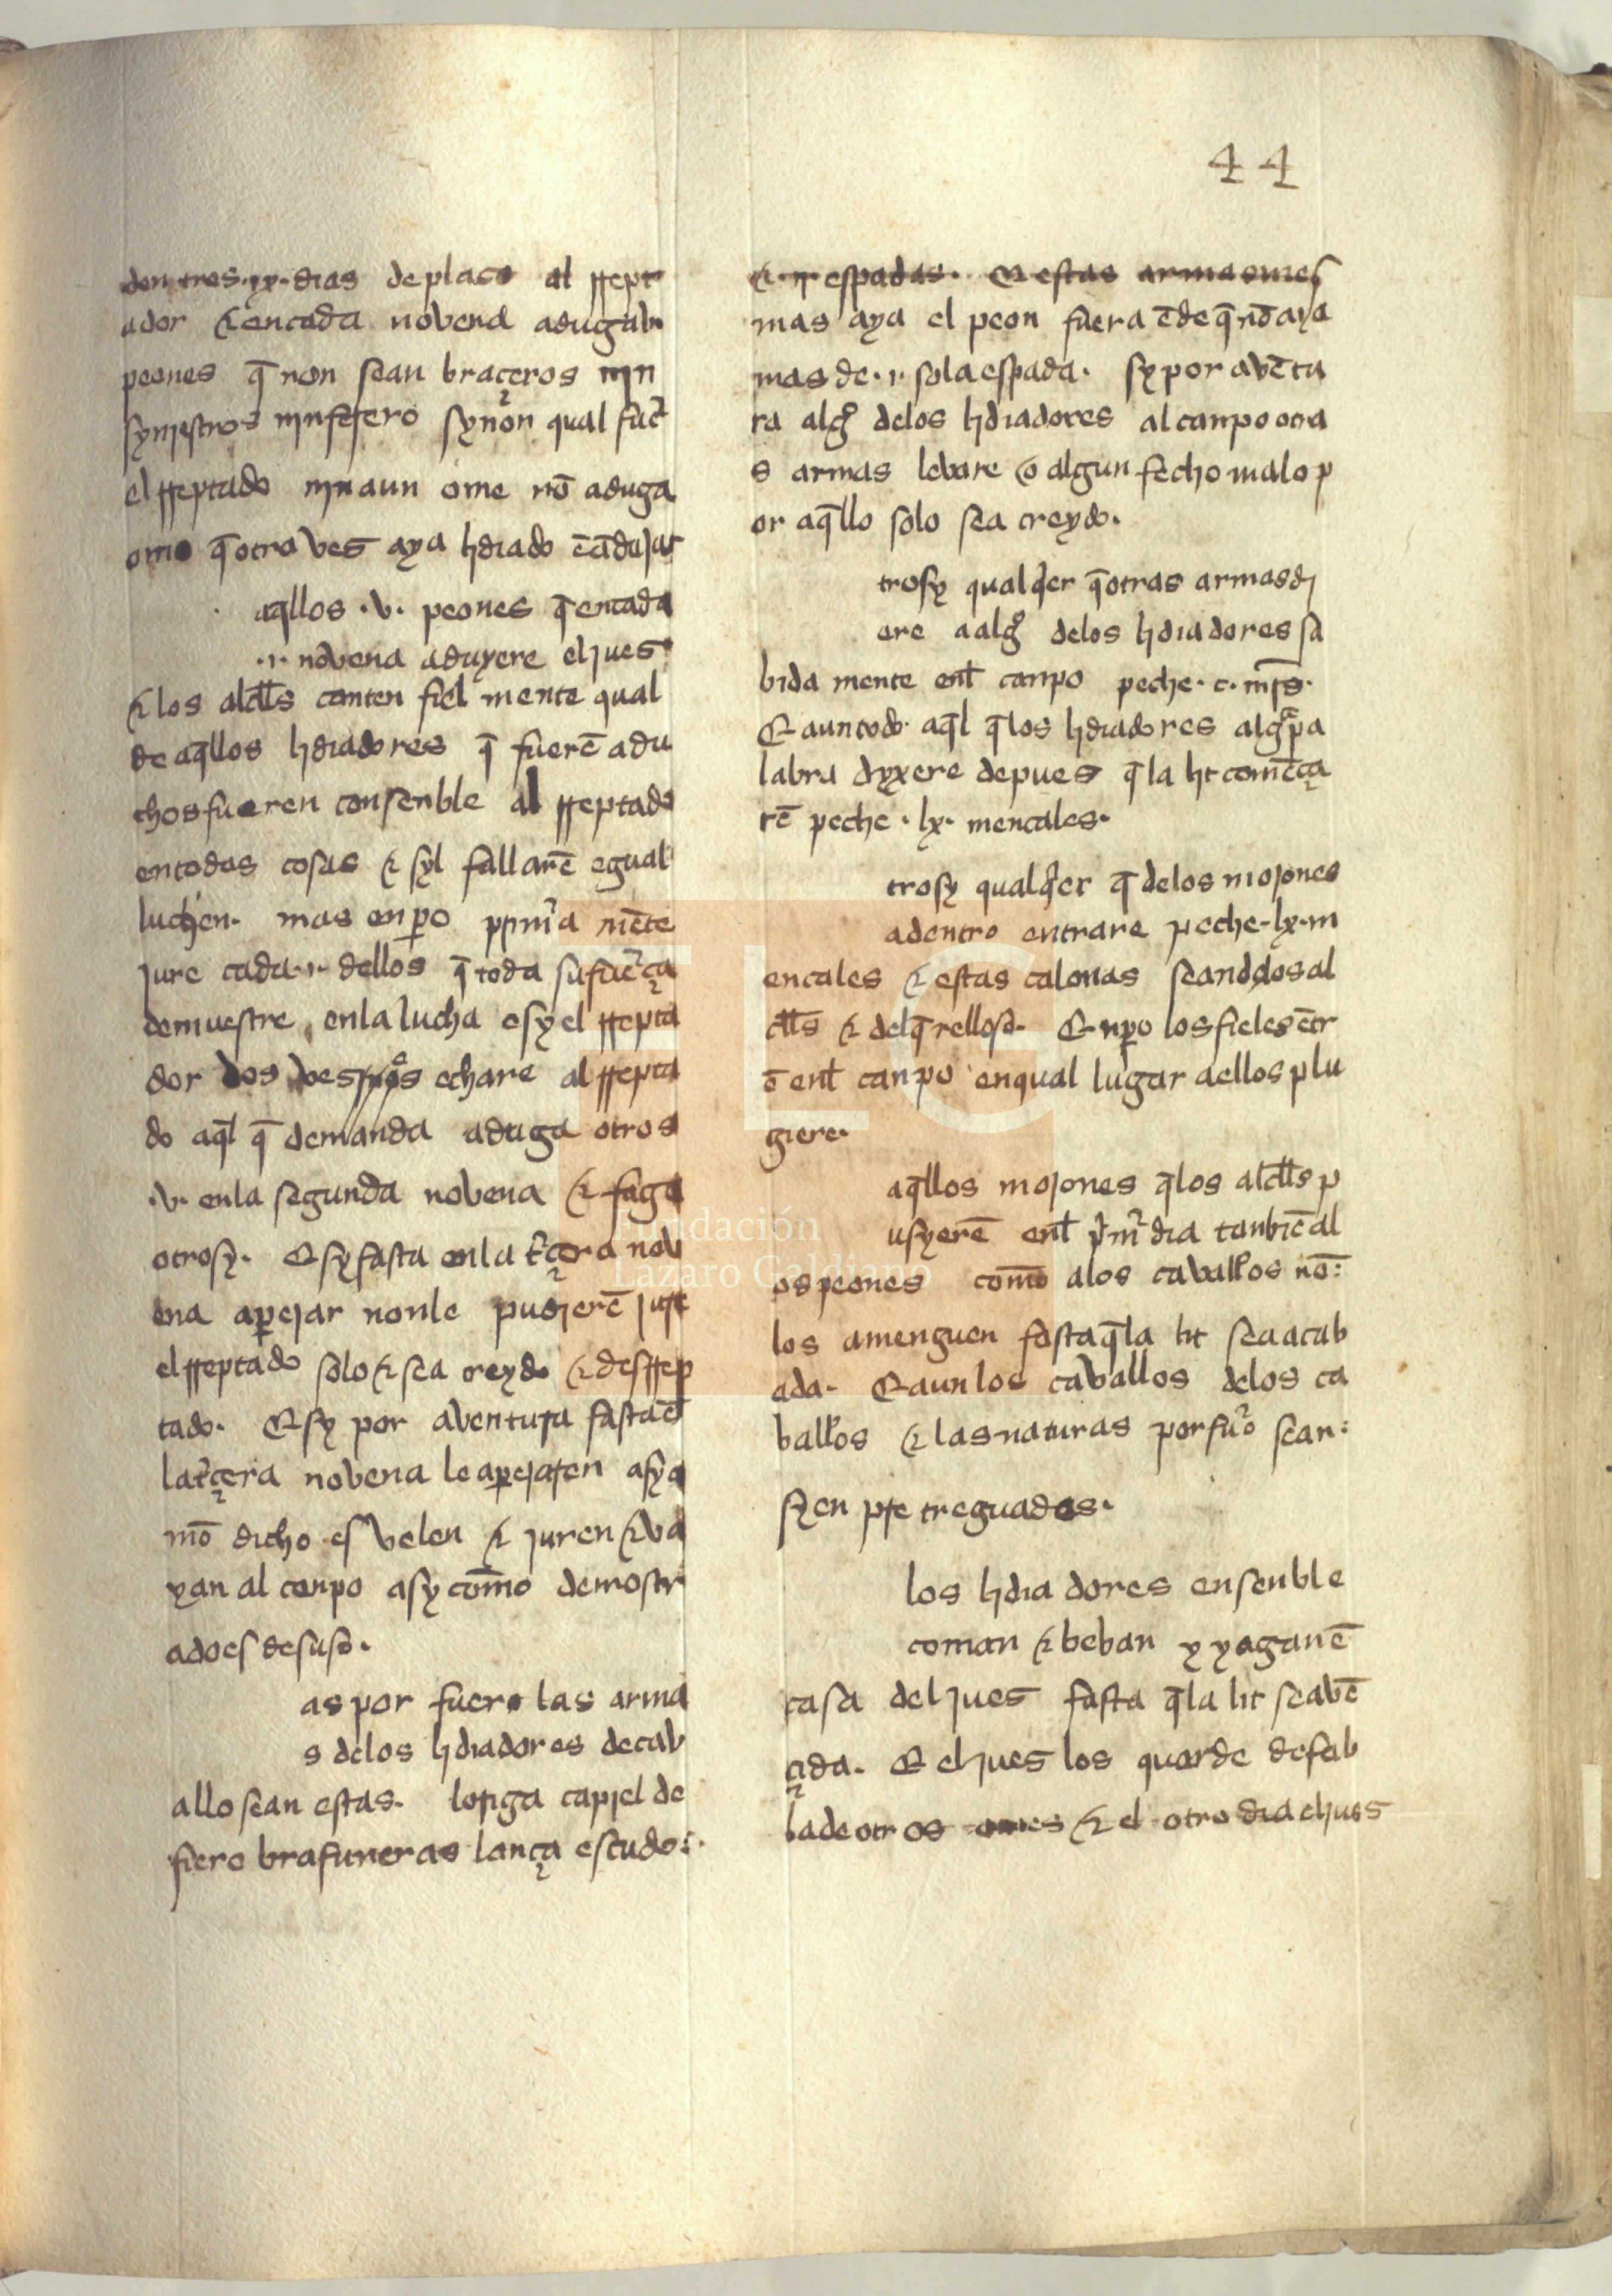 44
den tres .ix. dias de plaço al rrept
ador & en cada novena aduga .v.
peones q̄ non sean braçeros njn
synjestros njn fesero synon qual fuer̄
el rreptado njn aun ome nō aduga
ome q̄ otra ves aya lidiado
aq̄llos .v. peones q̄ en cada
.i. novena aduxere el jues
& los alcłłs canten fiel mente qual
de aq̄llos lidiadores q̄ fuerē adu
chos fueren consenble al rreptado
en todas cosas & syl fallarē egual
luchen. mas enꝑo pͥmͣa mēte
jure cada .i. dellos q̄ toda su fuērça
demuestre en la lucha e sy el rrepta
dor dos veses echare al rrepta
do aq̄l q̄ demanda aduga otros
.v. en la segunda novena & faga
otrosy. E sy fasta en la t̄çera nov
ena aꝑejar non le pudierē jure
el rreptado solo & sea creydo & desrrep
tado. E sy por aventura fasta ē
la t̄çera novena le aꝑejaren asy a
mō dicho es velen & juren & va
yan al canpo asy com̄o demostr
ado es desuso.
as por fuero las arma
s delos lidiadores de cav
allo sean estas. loriga capiel de
fiero brafuneras lança escudo:.
& .ii. espadas. E estas armas mes
mas aya el peon fuera ēde q̄ nō aya
mas de .i. sola espada. sy por avētu
ra algͦ delos lidiadores al canpo otra
s armas levare o algun fecho malo p
or aq̄llo solo sea creydo.
trosy qualqͥer q̄ otras armas di
ere a algͦ delos lidiadores sa
bida mente enł canpo peche .c. mr̄s.
E aun todo aq̄l q̄ los lidiadores algͣ pa
labra dyxere depues q̄ la lit comēça
rē peche .lx. mencales.
trosy qualqͥer q̄ delos mojones
adentro entrare peche .lx. m
encales & estas calonas sean delos al
cłłs & del q̄relloso. Enꝑo los fieles ētr
ē enł canpo en qual lugar a ellos plu
giere.
aq̄llos mojones q̄ los alcłłs p
usyerē enł pͥmͦ dia tanbiē al
os peones com̄o alos cavalłos nō:
los amenguen fasta q̄ la lit sea acab
ada. E aun los cavallos delos ca
balłos & las naturas por fuͦo sean:
syen pre treguados.
los lidia dores ensenble
coman & beban y yagan ē
casa del jues fasta q̄ la lit sea vē
çida. E el jues los guarde de fab
la de otros omes & el otro dia el jues